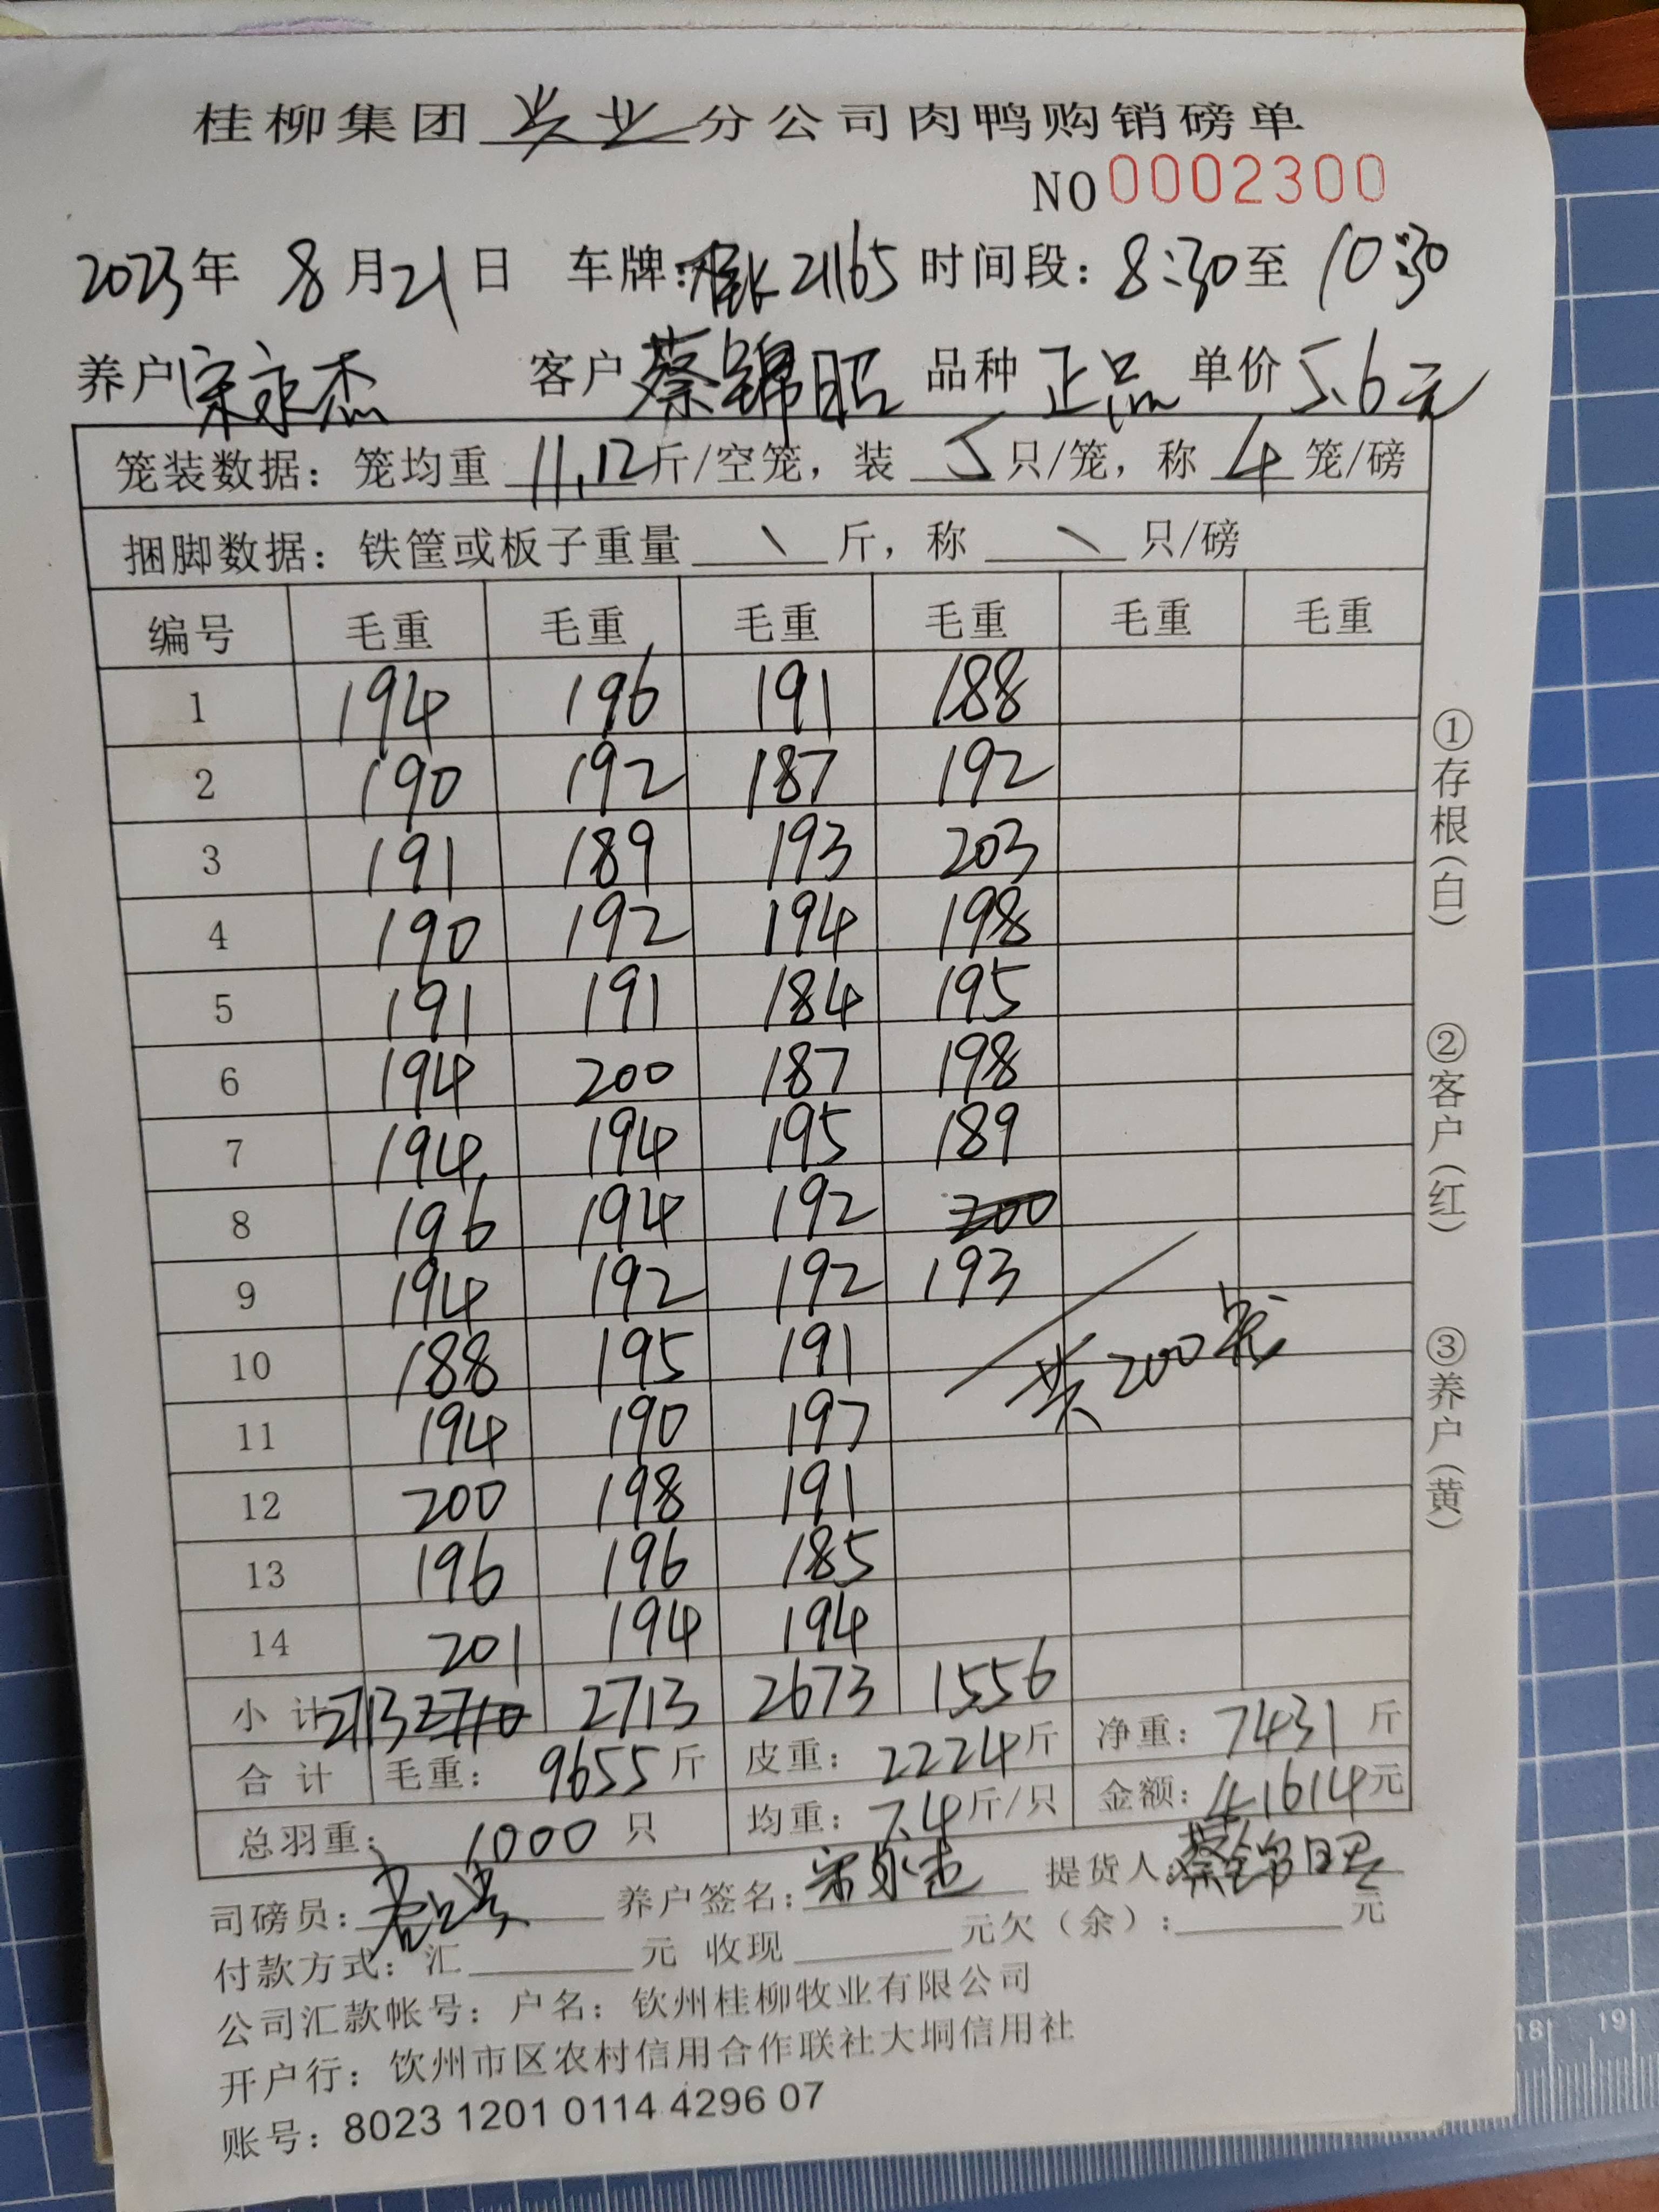 桂柳集团兴业分公司肉鸭购销磅单
NO 0002300
2023年 8月21日 车牌: 21165 时间段: 8:30至 10:30
养户 宋永杰 客户 蔡锦昭 品种 正品 单价 5.6元
笼装数据: 笼均重 11.12斤/空笼, 装 5 只/笼, 称 4 笼/磅
捆脚数据: 铁筐或板子重量 \ 斤, 称 \ 只/磅
编号 毛重 毛重 毛重 毛重 毛重 毛重
1 194 196 191 188
2 190 192 187 192
3 191 189 193 203
4 190 192 194 198
5 191 191 184 195
6 194 200 187 198
7 194 194 195 189
8 196 194 192 200
9 194 192 192 193
10 188 195 191
共200笼
11 194 190 197
12 200 198 191
13 196 196 185
14 201 194 194
小计 2713 2710 2713 2673 1556
合计 毛重: 9655斤 皮重: 2224斤 净重: 7431斤
总羽重: 1000只 均重: 7.4斤/只 金额: 41614元
司磅员: 养户签名: 宋永杰 提货人: 蔡锦昭
付款方式: 汇 元 收现 元欠(余): 元
公司汇款帐号: 户名: 钦州桂柳牧业有限公司
开户行: 钦州市区农村信用合作联社大垌信用社
账号: 8023 1201 0114 4296 07
①存根(白)
②客户(红)
③养户(黄)